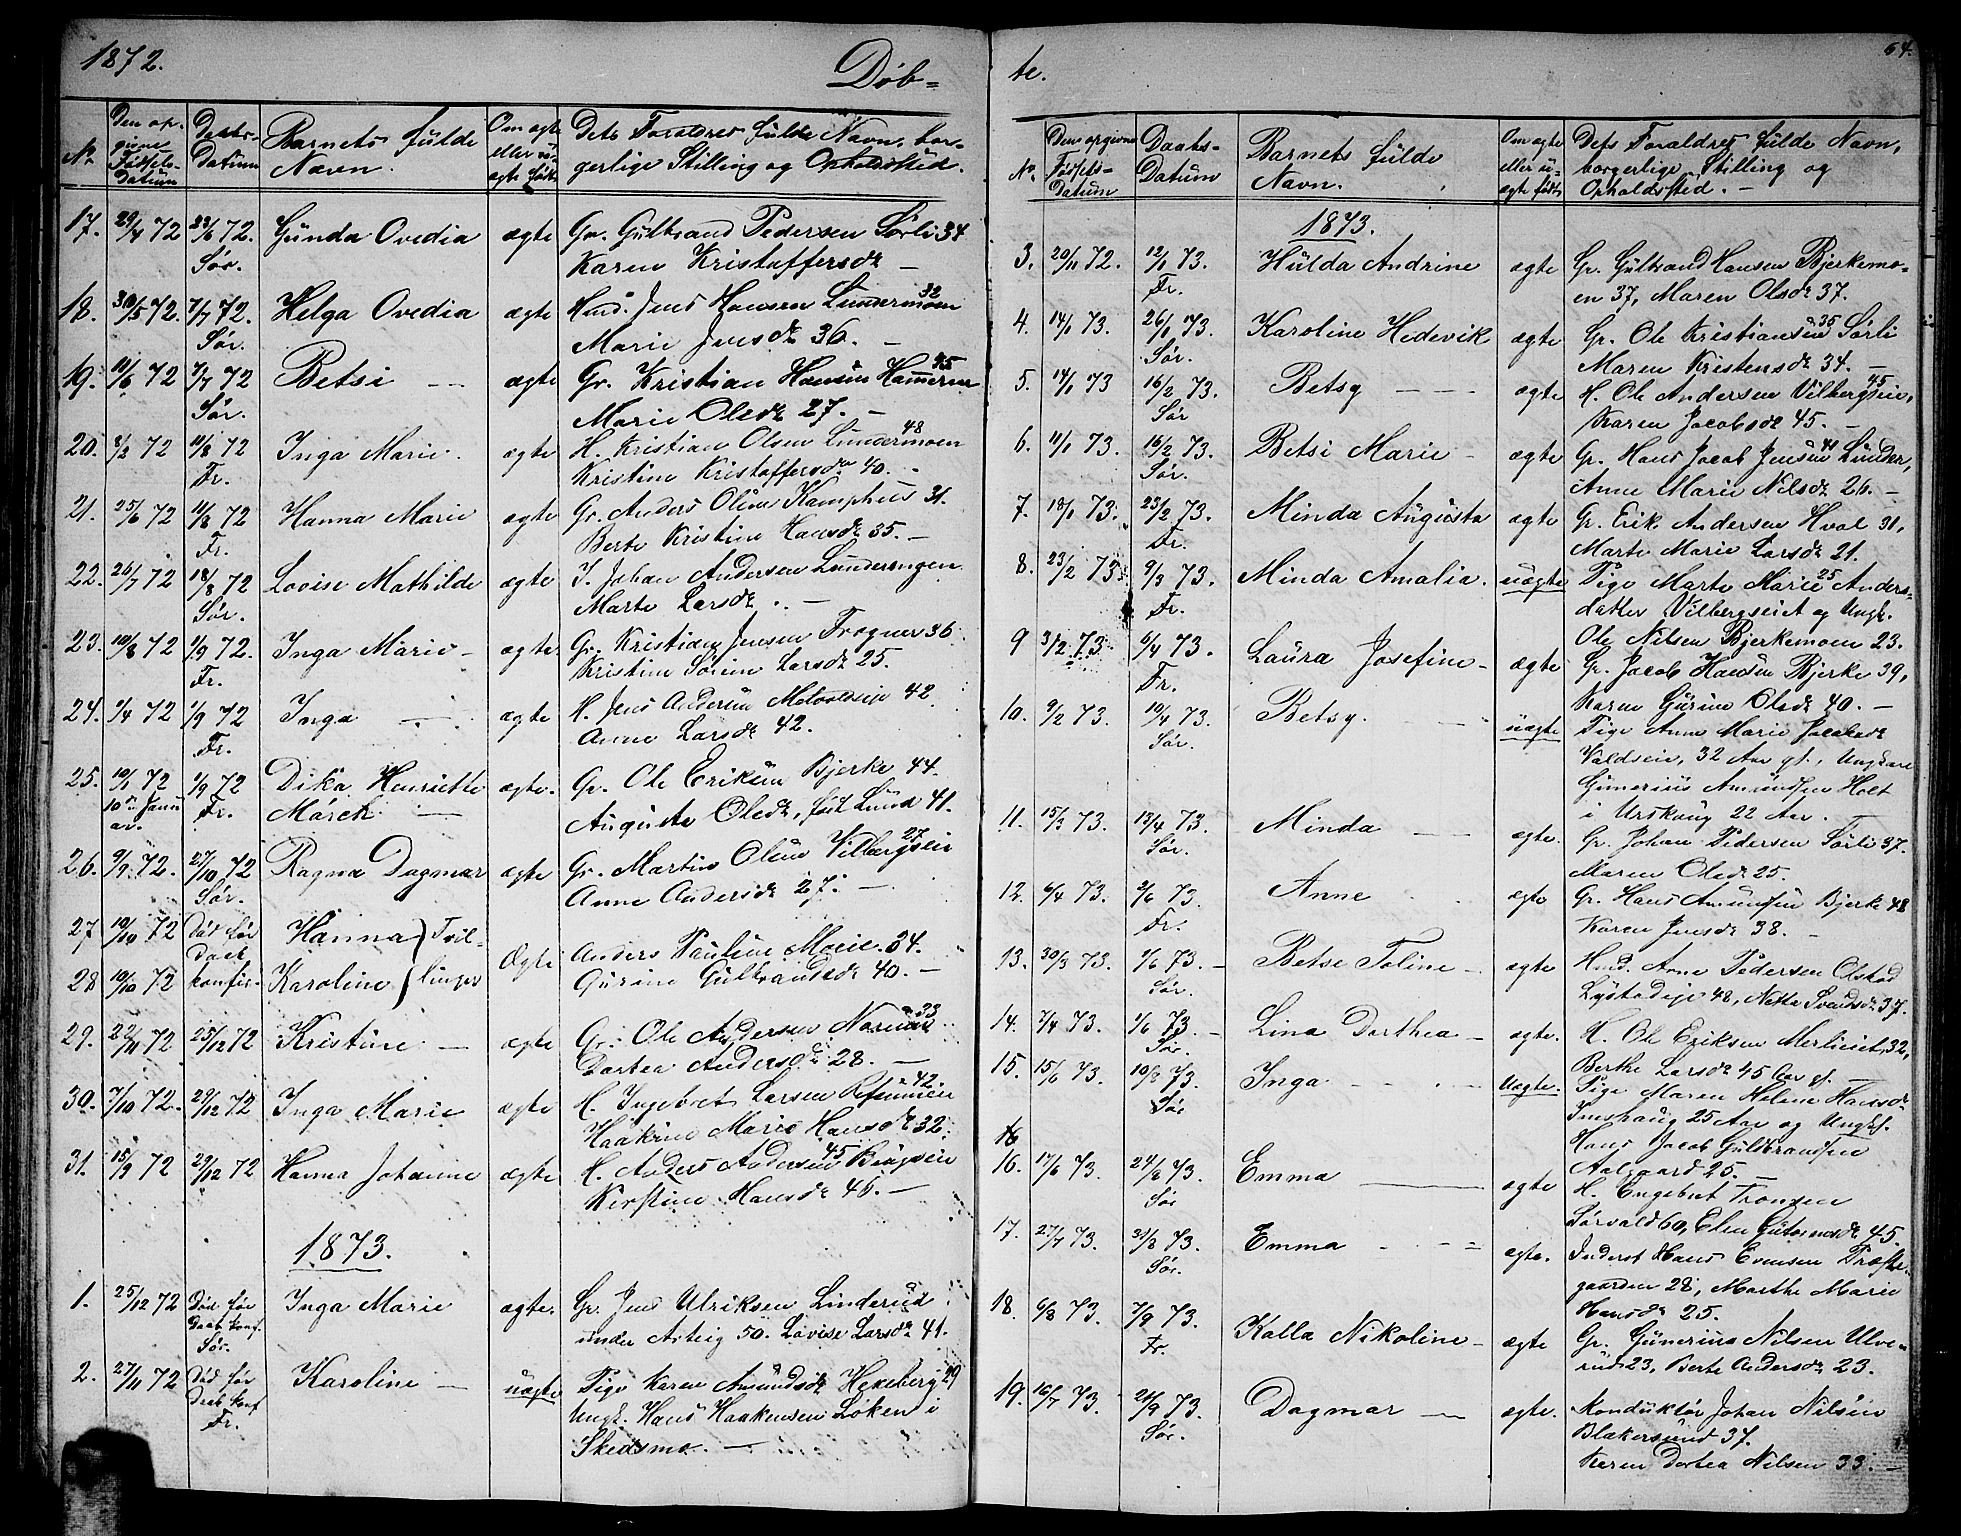 1872.
Døb-
No
Den op-
givne
Fødsels-
Datum
Daabs-
Datum
Barnets fulde
Navn.
Om ægte
eller u-
ægte født
Dets Forældres fulde Navn, bor-
gerlige Stilling og Opholdssted.
17. 29/4 72 23/6 72. Gunda Ovedia ægte Gr. Gulbrand Pedersen Sørli 34
Sør. Karen Kristoffersdr —
18. 30/5 72. 7/7 72. Helga Ovedia ægte Hmd. Jens Hansen Lundermoen 32
Sør. Marie Jensdr 36. —
19. 11/6 72 7/7 72 Betsi — ægte Gr. Kristian Hansen Hammeren 45
Sør. Marie Olsdr 27. —
20. 2/2 72 11/8 72 Inga Marie. ægte H. Kristian Olsen Lundermoen 48
Fr. Kristine Kristoffersdr 40. -
21. 25/6 72 11/8 72 Hanna Marie ægte Gr. Anders Olsen Kamphus 31.
Fr. Berte Kristine Hansdr 35. —
22. 26/7 72 18/8 72 Lovise Mathilde ægte I. Johan Andersen Lunderengen
Sør. Marte Larsdr .. —
23. 10/8 72 1/9 72. Inga Marie - ægte. Gr. Kristian Jensen Frogner 36
Fr. Kristine Sørine Larsdr 25.
24. 1/4 72 1/9 72 Inga — ægte H. Jens Andersen 42
Fr. Anne Larsdr 42.
25. 10/1 72 1/9 72 Dika Henriette ægte. Gr. Ole Eriksen Bjerke 44.
10de Janu
ar. Fr. Mörch — Auguste Olsdr, født Lund 41.
26. 9/9 72. 27/10 72 Ragna Dagmar ægte Gr. Martin Olsen Vilbergseie 27
Sør. Anne Andersdr 27. —
27 10/10 72 Død før Hanna } Tvil- Ægte Anders Paulsen Moeie. 34.
Daab
28 10/10 72 konfir- Karoline } linger Gurine Gulbrandsdr 40. —
29. 22/11 72 25/12 72 Kristine. — ægte Gr. Ole Andersen 33
Dortea Andersdr 28. —
30. 7/10 72. 29/12 72 Inga Marie ægte H. Ingebret Larsen 42.
Haakrine Marie Hansdr 32.
31. 15/9 72 29/12 72 Hanna Johanne ægte H. Anders Andersen 45
Kirstine Hansdr 46. —
1873.
1. 25/12 72 Død før Inga Marie ægte. Gr. Jens Ulriksen Linderud
Daab konf.
Sør. under Asteig 50. Lovise Larsdr 41.
2. 27/11 72 Død før Karoline — uægte Pige Karen Amundsdr Hexeberg 29
Daab konf
Fr. Ungk. Hans Haakensen Løken i
Skedsmo. —
te.
64.
No.
Den opgivne
Fødsels-
Datum
Daabs-
Datum
Barnets fulde
Navn.
Om ægte
eller u-
ægte født
Dets Forældres fulde Navn,
borgerlige Stilling og
Opholdssted. —
1873.
3. 20/11 72. 12/1 73. Hulda Andrine ægte Gr. Gulbrand Hansen Bjerkemo-
Fr. en 37, Maren Olsdr 37.
4. 14/1 73. 26/1 73. Karoline Hedevik ægte Gr. Ole Kristiansen 35 Sørli
Sør. Maren Kristensdr 34. —
5. 14/1 73 16/2 73. Betsy — ægte H. Ole Andersen Vilbergseie, 45
Sør Karen Jacobsdr 45. —
6. 11/1 73. 16/2 73. Betsi Marie - ægte Gr. Hans Jacob Jensen 41 Lunder,
Sør. Anne Marie Nilsdr 26. —
7. 18/1 73. 23/2 73. Minda Augusta ægte Gr. Erik Andersen Hval 31,
Fr. Marte Marie Larsdr 21.
8. 23/2 73. 9/3 73. Minda Amalia. uægte Pige Marte Marie 25 Anders-
Fr. datter Vilbergseiet og Ungk.
Ole Nilsen Bjerkemoen 23.
9 3/2 73. 6/4 73. Laura Josefine - ægte Gr. Jacob Hansen Bjerke 39,
Fr. Karen Gurine Olsdr 40. —
10. 9/2 73. 10/4 73. Betsy. — uægte Pige Anne Marie Jacobsdr
Sør. Valdseie, 32 Aar gl., Ungkarl
Gunerius Amundsen Holt
i Urskoug 22 Aar. —
11. 15/3 73. 13/4 73. Minda — ægte. Gr. Johan Pedersen Sørli 37.
Sør. Maren Olsdr 25.
12. 6/4 73. 2/6 73. Anne ægte Gr. Hans Amundsen Bjerke 48
Fr. Karen Jensdr 38. —
13. 30/3 73. 1/6 73. — Betsi Toline — ægte Hmd. Arne Pedersen Olstad
Sør. 48, 37.
14. 7/4 73. 1/6 73. — Lina Dorthea — ægte. H. Ole Eriksen Merlieiet, 32,
Sør. Berthe Larsdr 45 Aar gl. —
15. 15/6 73. 10/8 73. Inga — Uægte. Pige Maren Helene Hansdr
Sør 25 Aar og Ungk.
Hans Jacob Guldbrandsen
Aalgaard 25. —
16
16. 17/6 73. 24/8 73. Emma — ægte H. Engebret Tronsen
Sør Sørvald 60, Elen Gutormsdr 45.
17. 27/7 73. 31/8 73. Emma — ægte. Inderst Hans Evensen Præste-
Sør. gaarden 28, Marthe Marie
Hansdr 25.
18. 6/8 73. 7/9 73. Kalla Nikoline - ægte Gr. Gunerius Nilsen Ulve-
Fr. rud 23, Berte Andersdr 23.
19. 16/7 73. 21/9 73. Dagmar — ægte. Konduktør Johan Nilsen
Sør. Blakersund 37.
Karen Dortea Nilsen 33. —